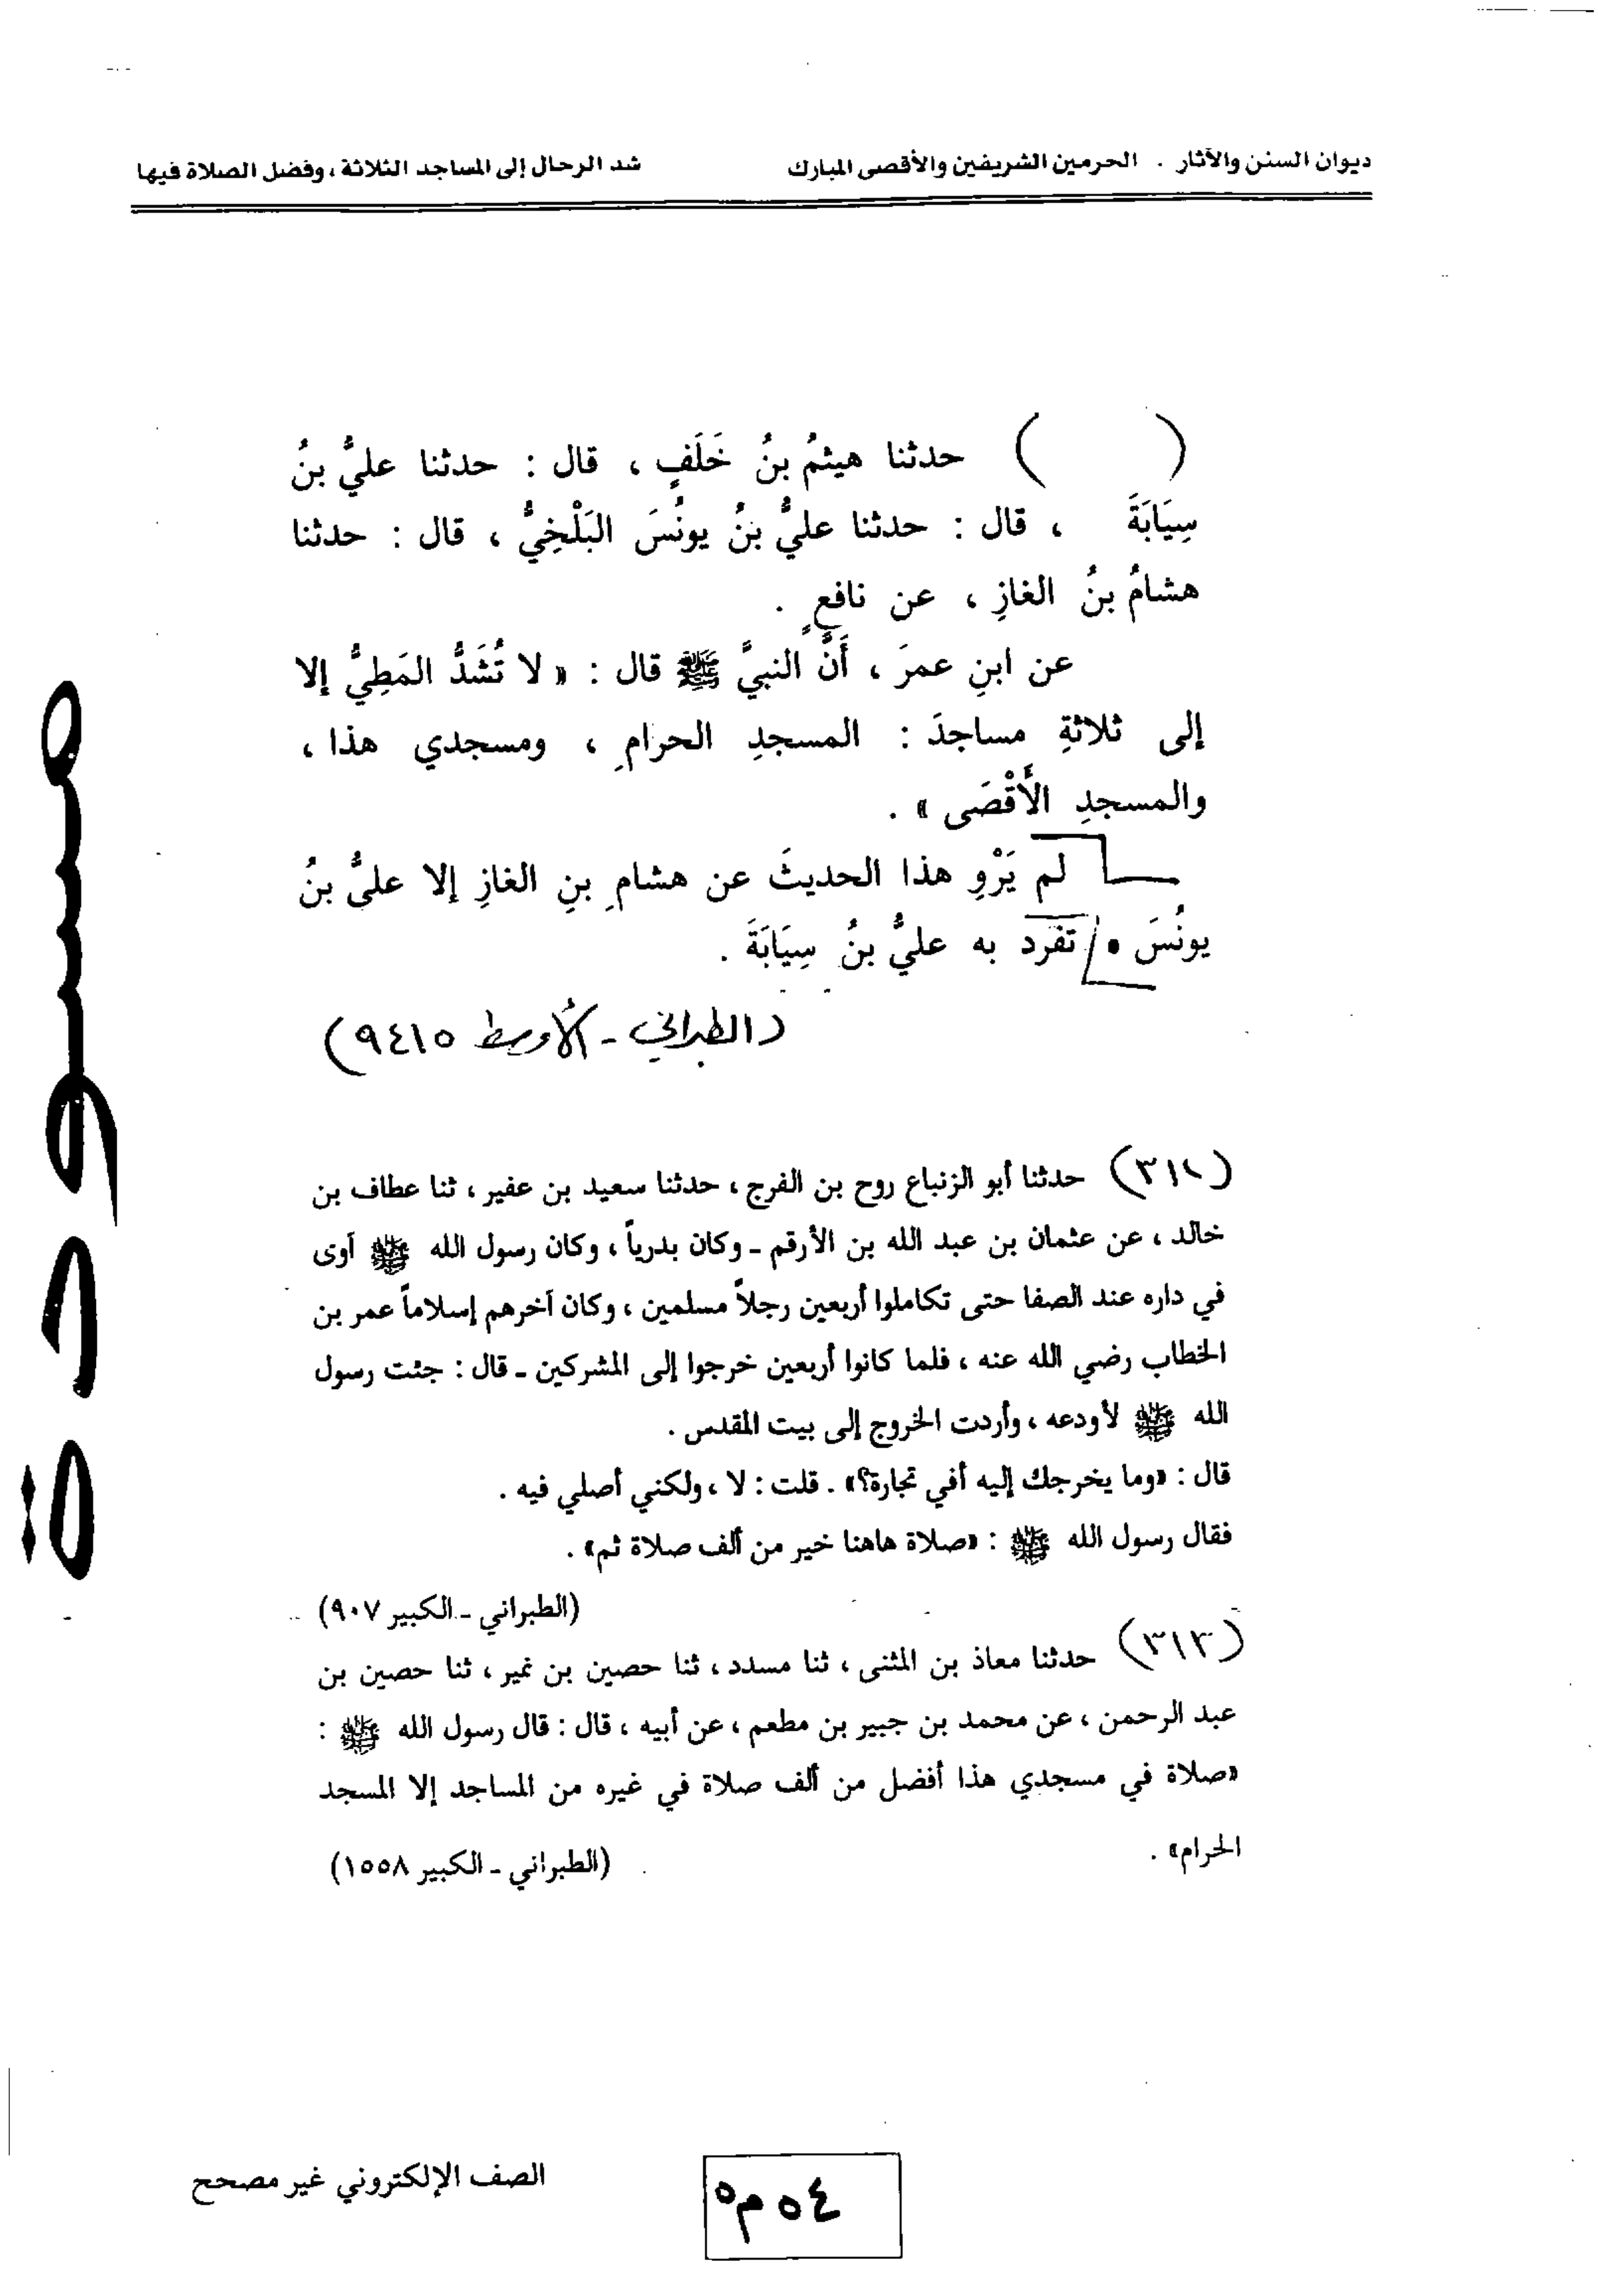 ديوان السنن والآثار . الحرمين الشريفين والأقصى المبارك شد الرحال إلى المساجد الثلاثة ، وفضل الصلاة فيها
( ) حدثنا هيثمُ بنُ خَلَفٍ ، قال : حدثنا عليُّ بنُ
سِيَابَةَ ، قال : حدثنا عليُّ بنُ يونُسَ البَلْخِيُّ ، قال : حدثنا
هشامُ بنُ الغازِ ، عن نافعٍ .
عن ابنِ عمرَ ، أَنَّ النبيَّ ﷺ قال : « لا تُشَدُّ المَطِيُّ إلا
إلى ثلاثةِ مساجدَ : المسجدِ الحرامِ ، ومسجدي هذا ،
والمسجدِ الأَقْصَى » .
لم يَرْوِ هذا الحديثَ عن هشامِ بنِ الغازِ إلا عليُّ بنُ
يونُسَ • / تفرد به عليُّ بنُ سِيَابَةَ .
(الطبراني - الأوسط ٩٤١٥)
(٣١٢) حدثنا أبو الزنباع روح بن الفرج ، حدثنا سعيد بن عفير ، ثنا عطاف بن
خالد ، عن عثمان بن عبد الله بن الأرقم ـ وكان بدرياً ، وكان رسول الله ﷺ آوى
في داره عند الصفا حتى تكاملوا أربعين رجلاً مسلمين ، وكان آخرهم إسلاماً عمر بن
الخطاب رضي الله عنه ، فلما كانوا أربعين خرجوا إلى المشركين ـ قال : جئت رسول
الله ﷺ لأودعه ، وأردت الخروج إلى بيت المقدس .
قال : «وما يخرجك إليه أفي تجارة؟» . قلت : لا ، ولكني أصلي فيه .
فقال رسول الله ﷺ : «صلاة هاهنا خير من ألف صلاة ثم» .
(الطبراني ـ الكبير ٩٠٧)
(٣١٣) حدثنا معاذ بن المثنى ، ثنا مسدد ، ثنا حصين بن نمير ، ثنا حصين بن
عبد الرحمن ، عن محمد بن جبير بن مطعم ، عن أبيه ، قال : قال رسول الله ﷺ :
«صلاة في مسجدي هذا أفضل من ألف صلاة في غيره من المساجد إلا المسجد
الحرام» .
(الطبراني ـ الكبير ١٥٥٨)
مسودة
الصف الإلكتروني غير مصحح
٥٤ م٥